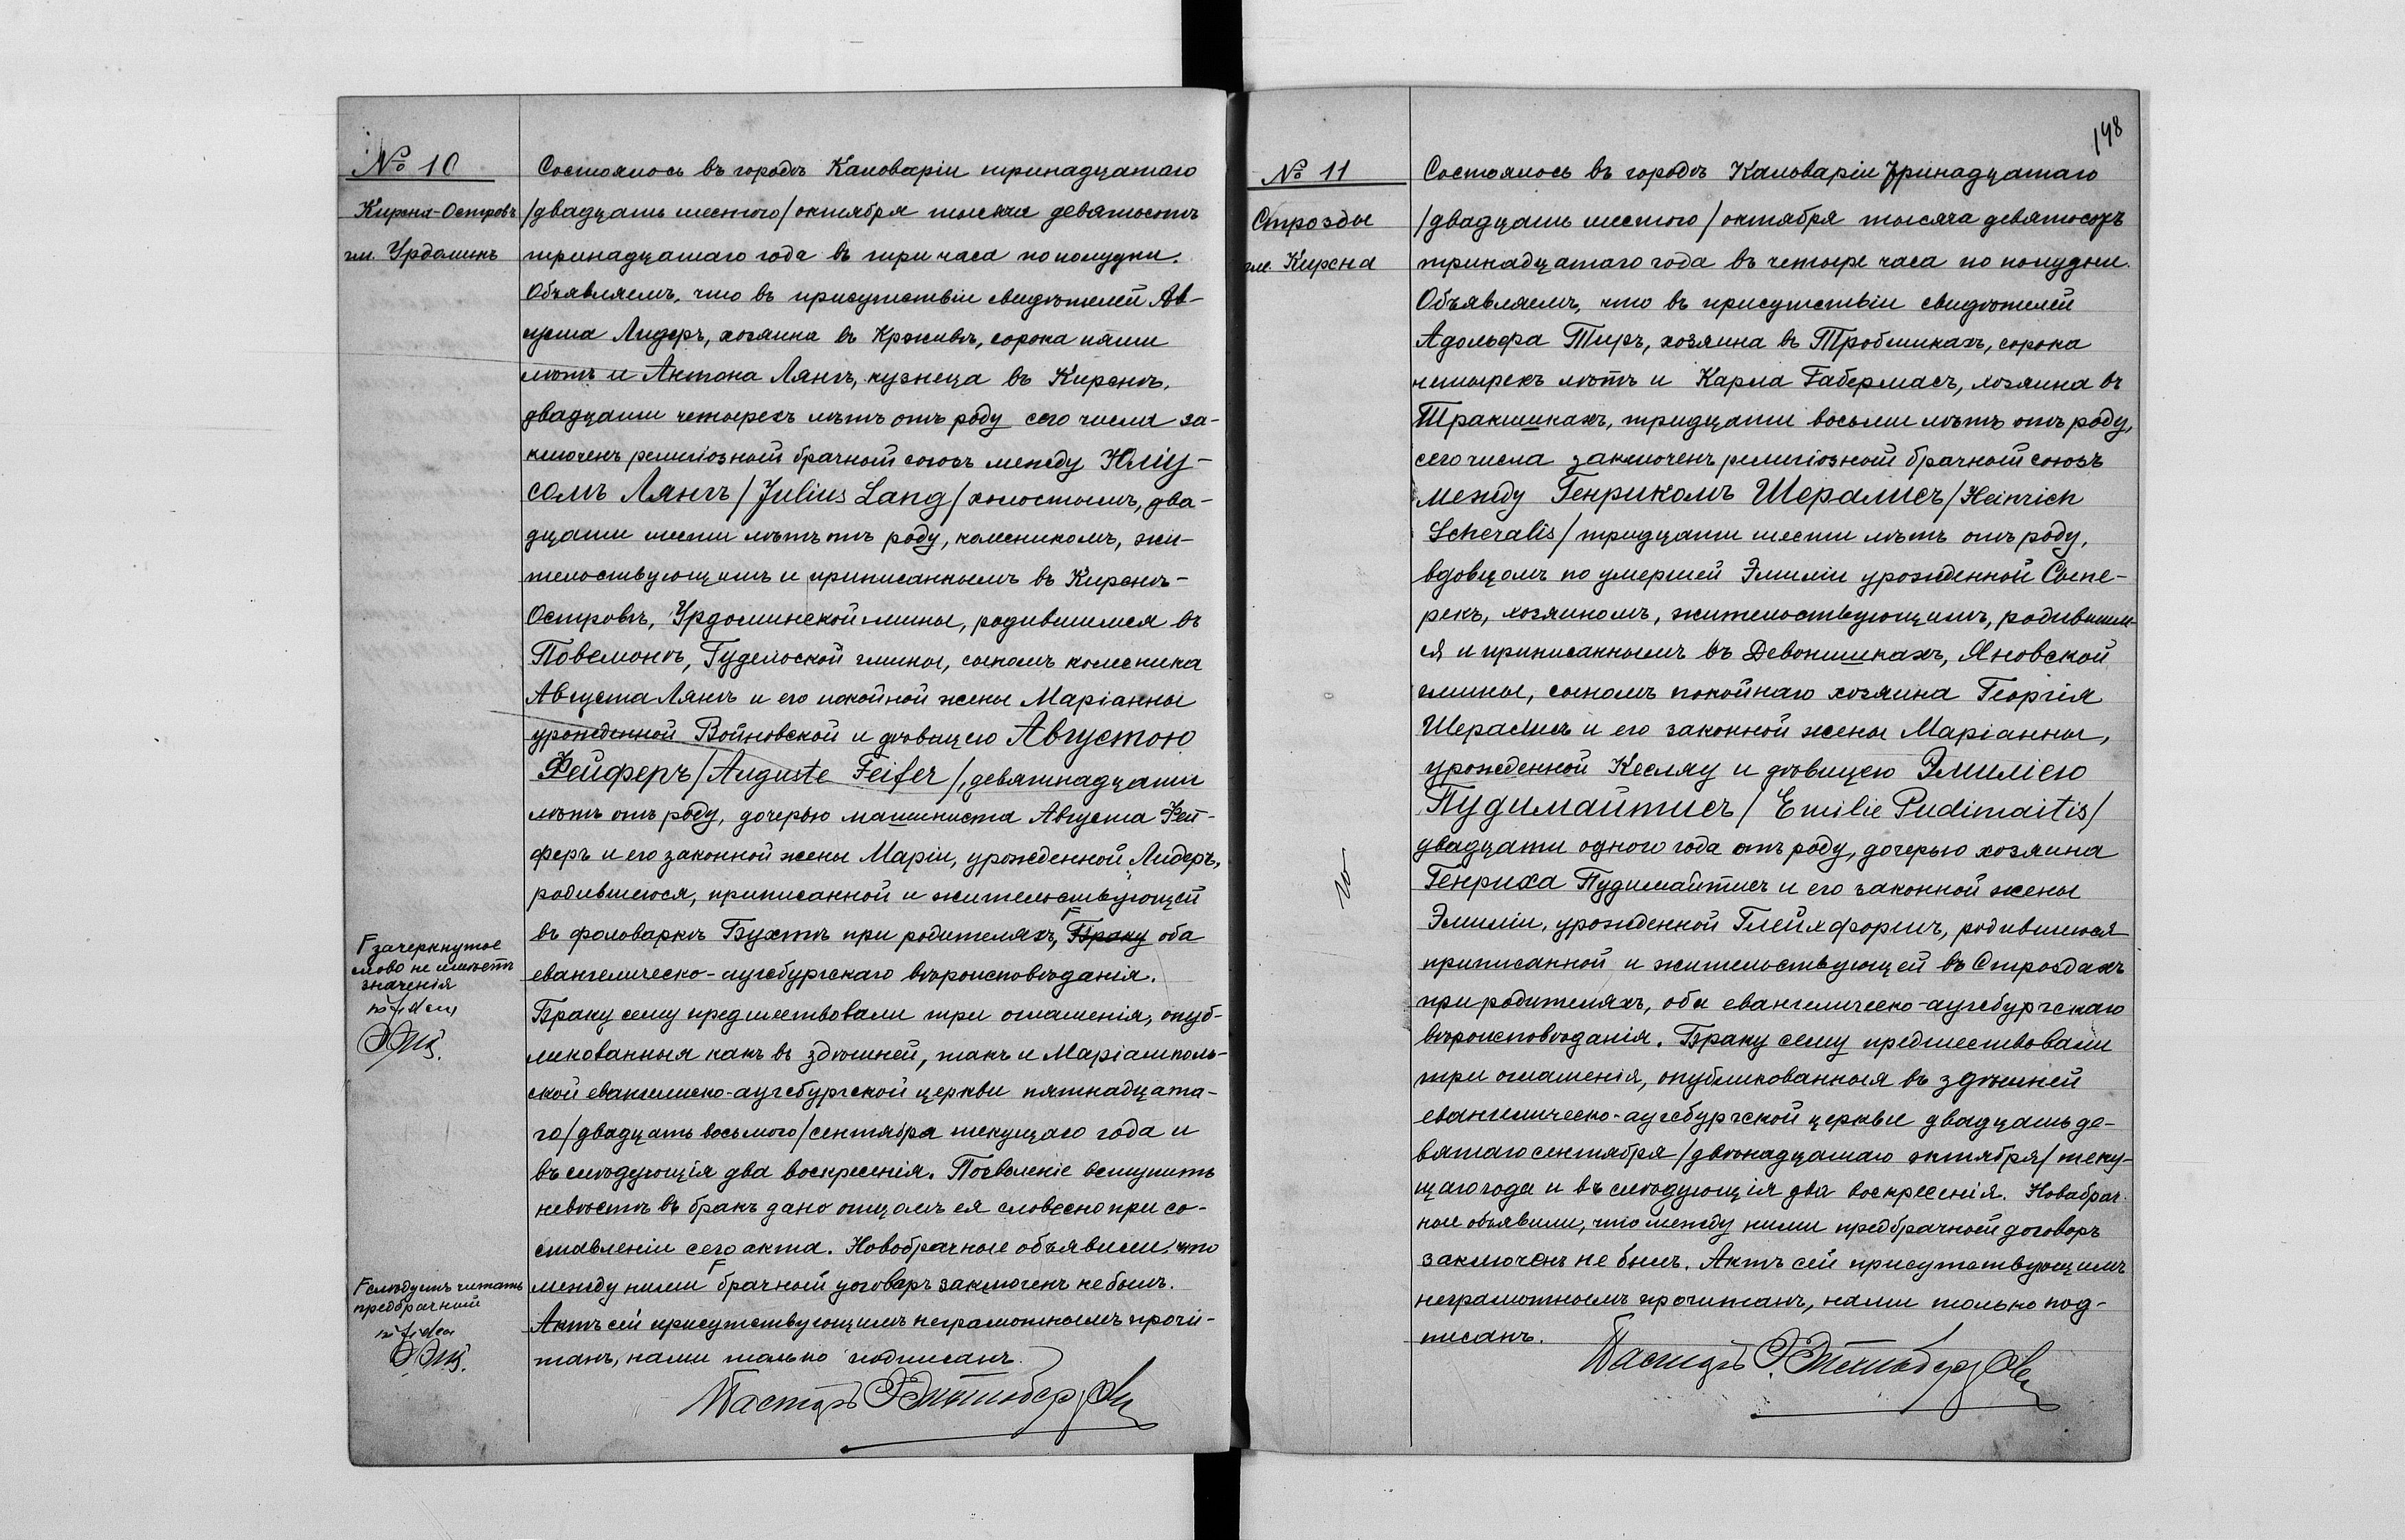 № 10
Кирсна-Островъ
гм. Урдоминъ
Состоялось въ городѣ Кальваріи тринадцатаго
/двадцать шестого/ октября тысяча девятьсотъ
тринадцатаго года въ три часа по полудни.
Объявляемъ, что въ присутствіи свидѣтелей Ав-
густа Лидеръ, хозяина въ , сорока пяти
лѣтъ и Антона Лянгъ, кузнеца въ Кирснѣ,
двадцати четырехъ лѣтъ отъ роду сего числа за-
ключенъ религіозный брачный союзъ между Юліу-
сомъ Лянгъ /Julius Lang/ холостымъ, два-
дцати шести лѣтъ отъ роду, колесникомъ, жи-
тельствующимъ и приписаннымъ въ Кирснѣ-
Островѣ, Урдоминской гмины, родившимся въ
Повемонѣ, Гудельской гмины, сыномъ колесника
Августа Лянгъ и его покойной жены Маріанны
урожденной Войновской и дѣвицею Августою
Фейферъ /Auguste Feifer/, девятнадцати
лѣтъ отъ роду, дочерью машиниста Августа Фей-
феръ и его законной жены Маріи, урожденной Лидеръ,
родившеюся, приписанной и жительствующей
въ фольваркѣ Бухтѣ при родителяхъ, Браку оба
евангелическо-аугсбургскаго вѣроисповѣданія.
Браку сему предшествовали три оглашенія, опуб-
ликованныя какъ въ здѣшней, такъ и Маріамполь-
ской евангелиско-аугсбургской церкви пятнадцата-
го /двадцать восьмого/ сентября текущаго года и
въ слѣдующія два воскресенія. Позволеніе вступить
невѣстѣ въ бракъ дано отцомъ ея словесно при со-
ставленіи сего акта. Новобрачные объявили, что
между ними брачный договоръ заключенъ не былъ.
Актъ сей присутствующимъ неграмотнымъ прочи-
танъ, нами только подписанъ.
Пасторъ
зачеркнутое
слово не имѣетъ
значенія
in fidem
слѣдуетъ читать
предбрачный
in fidem
148
№ 11
Строзды
гм. Кирсна
Состоялось въ городѣ Кальваріи тринадцатаго
/двадцать шестого/ октября тысяча девятьсотъ
тринадцатаго года въ четыре часа по полудни.
Объявляемъ, что въ присутствіи свидѣтелей
Адольфа Тиръ, хозяина въ Тробишкахъ, сорока
четырехъ лѣтъ и Карла Габермасъ, хозяина въ
Тракишкахъ, тридцати восьми лѣтъ отъ роду,
сего числа заключенъ религіозный брачный союзъ
между Генрикомъ Шералисъ /Heinrich
Scheralis/ тридцати шести лѣтъ отъ роду,
вдовцомъ по умершей Эмиліи урожденной Сыпе-
рекъ, хозяиномъ, жительствующимъ, родившим-
ся и приписаннымъ въ Девонишкахъ, Яновской
гмины, сыномъ покойнаго хозяина Георгія
Шералисъ и его законной жены Маріанны,
урожденной Кесляу и дѣвицею Эмиліею
Пудимайтисъ /Emilie Pudimaitis/
двадцати одного года отъ роду, дочерью хозяина
Генриха Пудимайтисъ и его законной жены
Эмиліи, урожденной Глейхфоршъ, родившеюся
приписанной и жительствующей въ Строздахъ
при родителяхъ, оба евангелическо-аугсбургскаго
вѣроисповѣданія. Браку сему предшествовали
три оглашенія, опубликованныя въ здѣшней
евангелическо-аугсбургской церкви двадцать де-
вятаго сентября /двѣнадцатаго октября/ теку-
щаго года и въ слѣдующія два воскресенія. Новобрач-
ные объявили, что между ними предбрачный договоръ
заключенъ не былъ. Актъ сей присутствующимъ
неграмотнымъ прочитанъ, нами только под-
писанъ.
Пасторъ